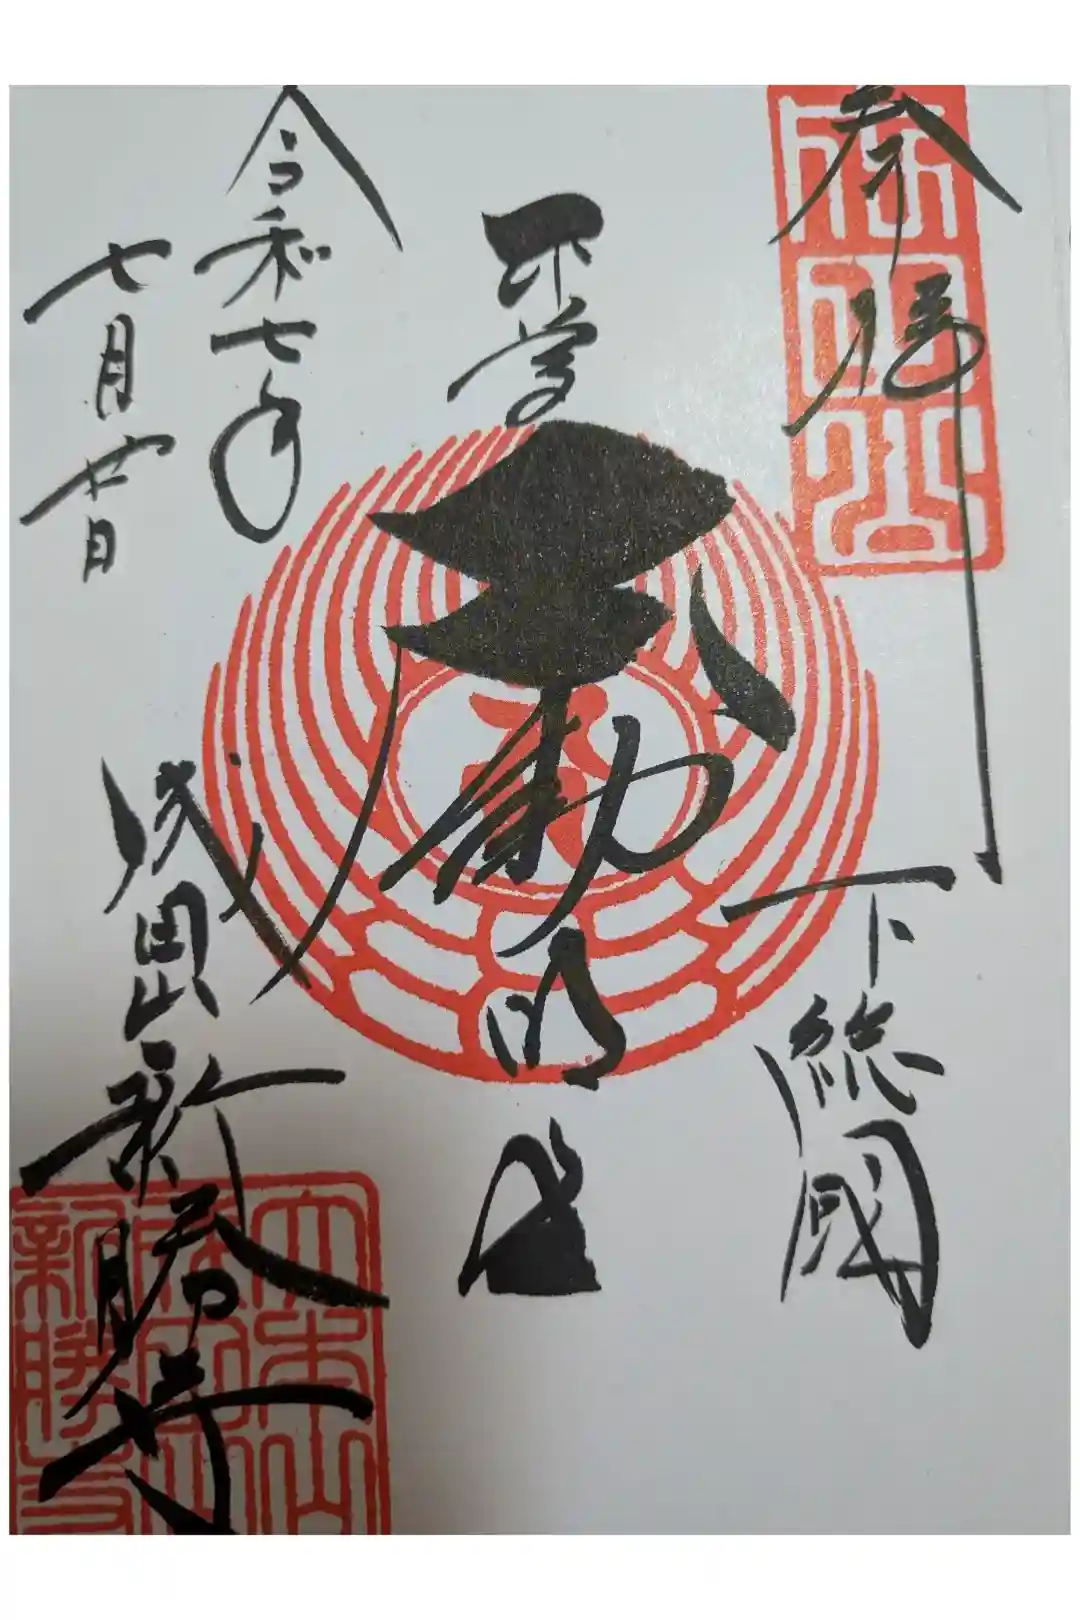 奉拝
下総國
不動明王
令和七年
七月廿日
成田山新勝寺
大本山
成田山
新勝寺